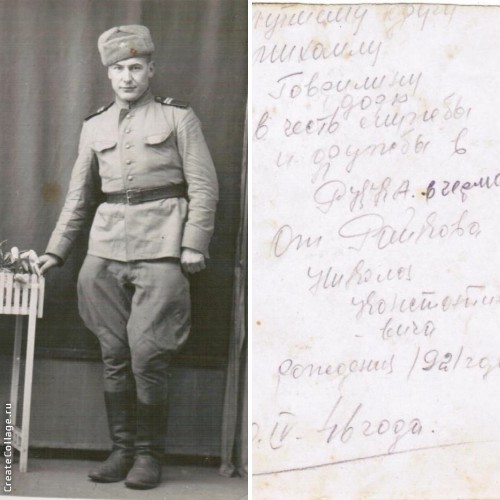 другу
Михаилу
дарю
в честь службы
и дружбы в
РККА. в герма
От Райкова
Никола
Константи
вича
рождения 1921 года
IV. 46 года.
CreateCollage.ru